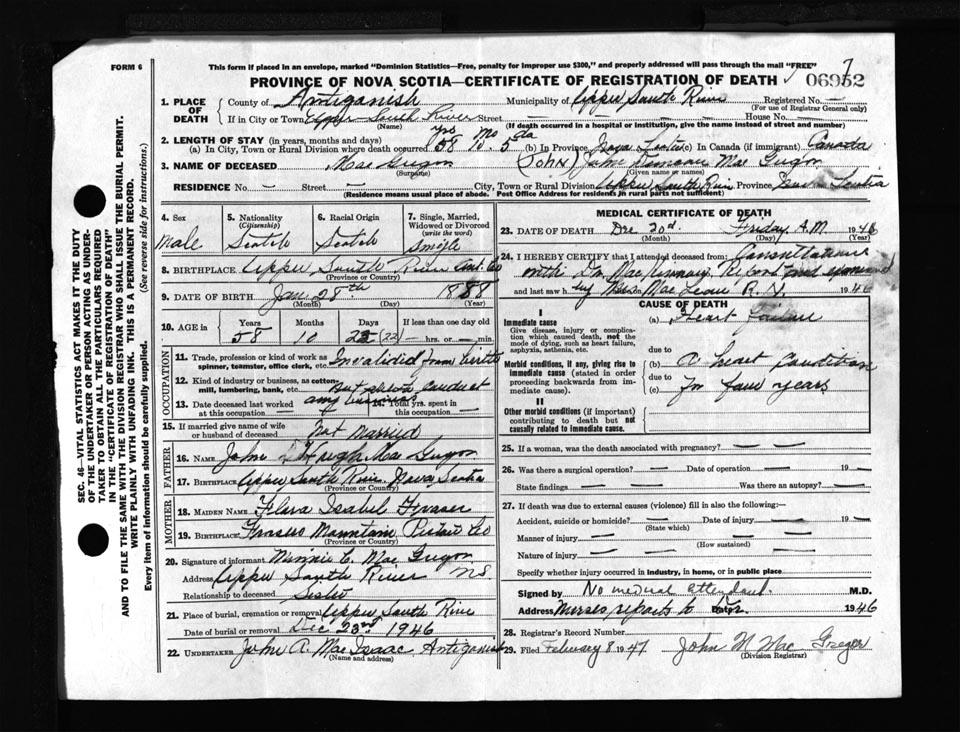 FORM 6
This form if placed in an envelope, marked "Dominion Statistics—Free, penalty for improper use $300," and properly addressed will pass through the mail "FREE"
PROVINCE OF NOVA SCOTIA—CERTIFICATE OF REGISTRATION OF DEATH
06952
7
SEC. 46—VITAL STATISTICS ACT MAKES IT THE DUTY
OF THE UNDERTAKER OR PERSON ACTING AS UNDER-
TAKER TO OBTAIN ALL THE PARTICULARS REQUIRED
IN THE "CERTIFICATE OF REGISTRATION OF DEATH"
AND TO FILE THE SAME WITH THE DIVISION REGISTRAR WHO SHALL ISSUE THE BURIAL PERMIT.
WRITE PLAINLY WITH UNFADING INK. THIS IS A PERMANENT RECORD.
Every item of information should be carefully supplied. (See reverse side for instructions.)
1. PLACE OF DEATH
County of Antiganish Municipality of Upper South River Registered No. —
(For use of Registrar General only)
If in City or Town Upper South River Street — House No. —
(Name) (If death occurred in a hospital or institution, give the name instead of street and number)
yrs Mo da
2. LENGTH OF STAY (in years, months and days)
(a) In City, Town or Rural Division where death occurred 58 10. 5 (b) In Province Nova Scotia (c) In Canada (if immigrant) Canada
3. NAME OF DECEASED Mac Gregor (John) John Duncan Mac Gregor
(Surname) (Given name or names)
RESIDENCE No. — Street — City, Town or Rural Division Upper South River Province Nova Scotia
(Residence means usual place of abode. Post Office Address for residents in rural parts not sufficient)
4. Sex
Male
5. Nationality
(Citizenship)
Scotch
6. Racial Origin
Scotch
7. Single, Married, Widowed or Divorced
(write the word)
Single
8. BIRTHPLACE Upper South River Ant. Co
(Province or Country)
9. DATE OF BIRTH Jan 28th 1888
(Month) (Day) (Year)
10. AGE in Years Months Days If less than one day old
58 10 (22) — hrs. or — min.
OCCUPATION
11. Trade, profession or kind of work as spinner, teamster, office clerk, etc. Invalided from birth
12. Kind of industry or business, as cotton-mill, lumbering, bank, etc. conduct
any business
13. Date deceased last worked at this occupation — 14. Total yrs. spent in this occupation —
15. If married give name of wife or husband of deceased Not Married
FATHER
16. NAME John Hugh Mac Gregor
17. BIRTHPLACE Upper South River Nova Scotia
(Province or Country)
MOTHER
18. MAIDEN NAME Flora Isabel Fraser
19. BIRTHPLACE Frasers Mountain Pictou Co
(Province or Country)
20. Signature of informant Minnie C. Mac Gregor
Address Upper South River NS
Relationship to deceased Sister
21. Place of burial, cremation or removal Upper South River
Date of burial or removal Dec 23rd 1946
22. UNDERTAKER John A. Mac Isaac Antiganish
(Name and address)
MEDICAL CERTIFICATE OF DEATH
23. DATE OF DEATH Dec 20d. Friday A.M 1946
(Month) (Day) (Year)
24. I HEREBY CERTIFY that I attended deceased from: Consultation
with Dr. MacKinnon, Report
and last saw h Mac Lean R. N. 1946
CAUSE OF DEATH
I
Immediate cause
Give disease, injury or complication which caused death, not the mode of dying, such as heart failure, asphyxia, asthenia, etc.
(a) Heart failure
due to
Morbid conditions, if any, giving rise to immediate cause (stated in order proceeding backwards from immediate cause).
(b) A heart Condition
due to
(c) for few years
II
Other morbid conditions (if important) contributing to death but not causally related to immediate cause.
25. If a woman, was the death associated with pregnancy? — —
26. Was there a surgical operation? — Date of operation — 19 —
State findings — — Was there an autopsy? —
27. If death was due to external causes (violence) fill in also the following:—
Accident, suicide or homicide? — Date of injury — 19 —
(State which)
Manner of injury — —
(How sustained)
Nature of injury — —
Specify whether injury occurred in industry, in home, or in public place
Signed by No medical attendant. M.D.
Address Nurses reports to Dr. 1946
28. Registrar's Record Number
29. Filed February 8 1947 John N Mac Gregor
(Division Registrar)